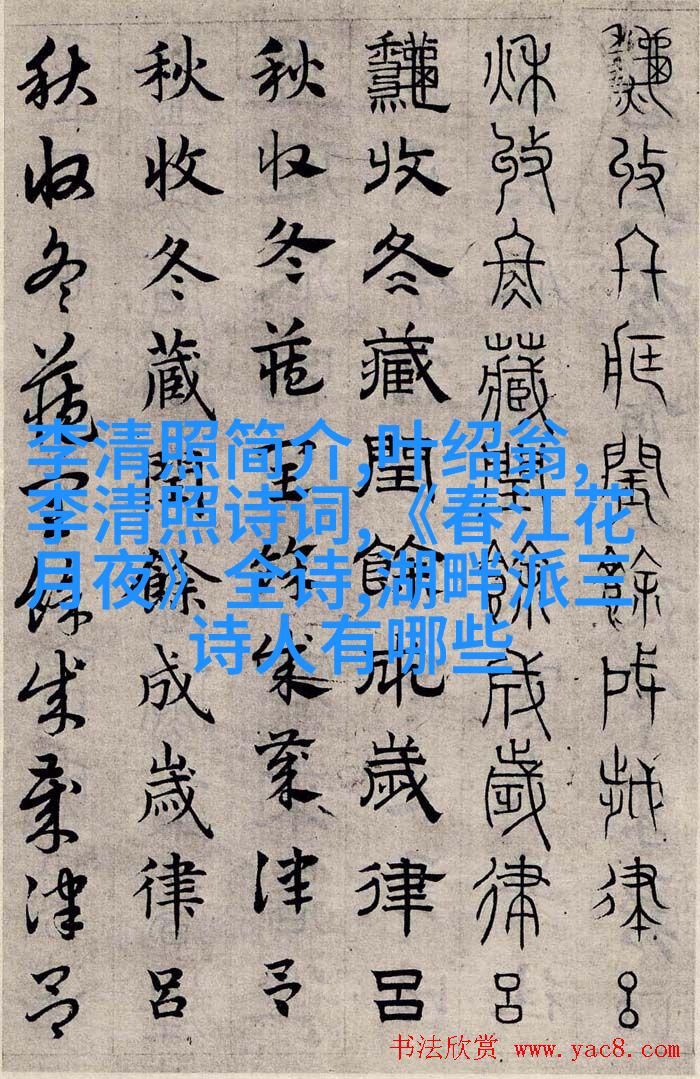 收冬藏閏餘成歲律呂
秋收冬藏閏餘成歲律呂
收冬藏閏餘成歲律呂
秋收冬藏閏餘成歲律呂
秋收冬藏閏餘成歲律呂
秋收冬藏閏餘成歲律呂
李清照简介,叶绍翁,
李清照诗词,《春江花
月夜》全诗,湖畔派三
诗人有哪些
书法欣赏 www.yac8.com